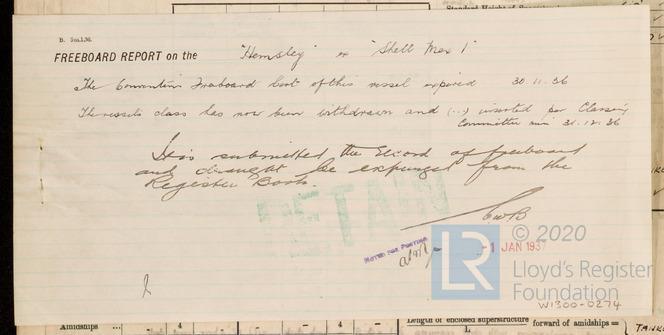 Standard Height of Superstructure
B. 5m.1.36.
FREEBOARD REPORT on the "Hemsley" ex "Shell Mex 1"
The Convention Freeboard Cert of this vessel expired 30.11.36
The vessels class has now been withdrawn and (...) inserted per Classing
Committee min 31.12.36
It is submitted the record of freeboard
and draught be expunged from the
Register Book.
RETAIN
CWB
NOTED FOR POSTING
-1 JAN 1937
© 2020
LR
Lloyd's Register
Foundation
W1300-0274
Amidships ... 4 4
Length of enclosed superstructure forward of amidships =
L
TANK